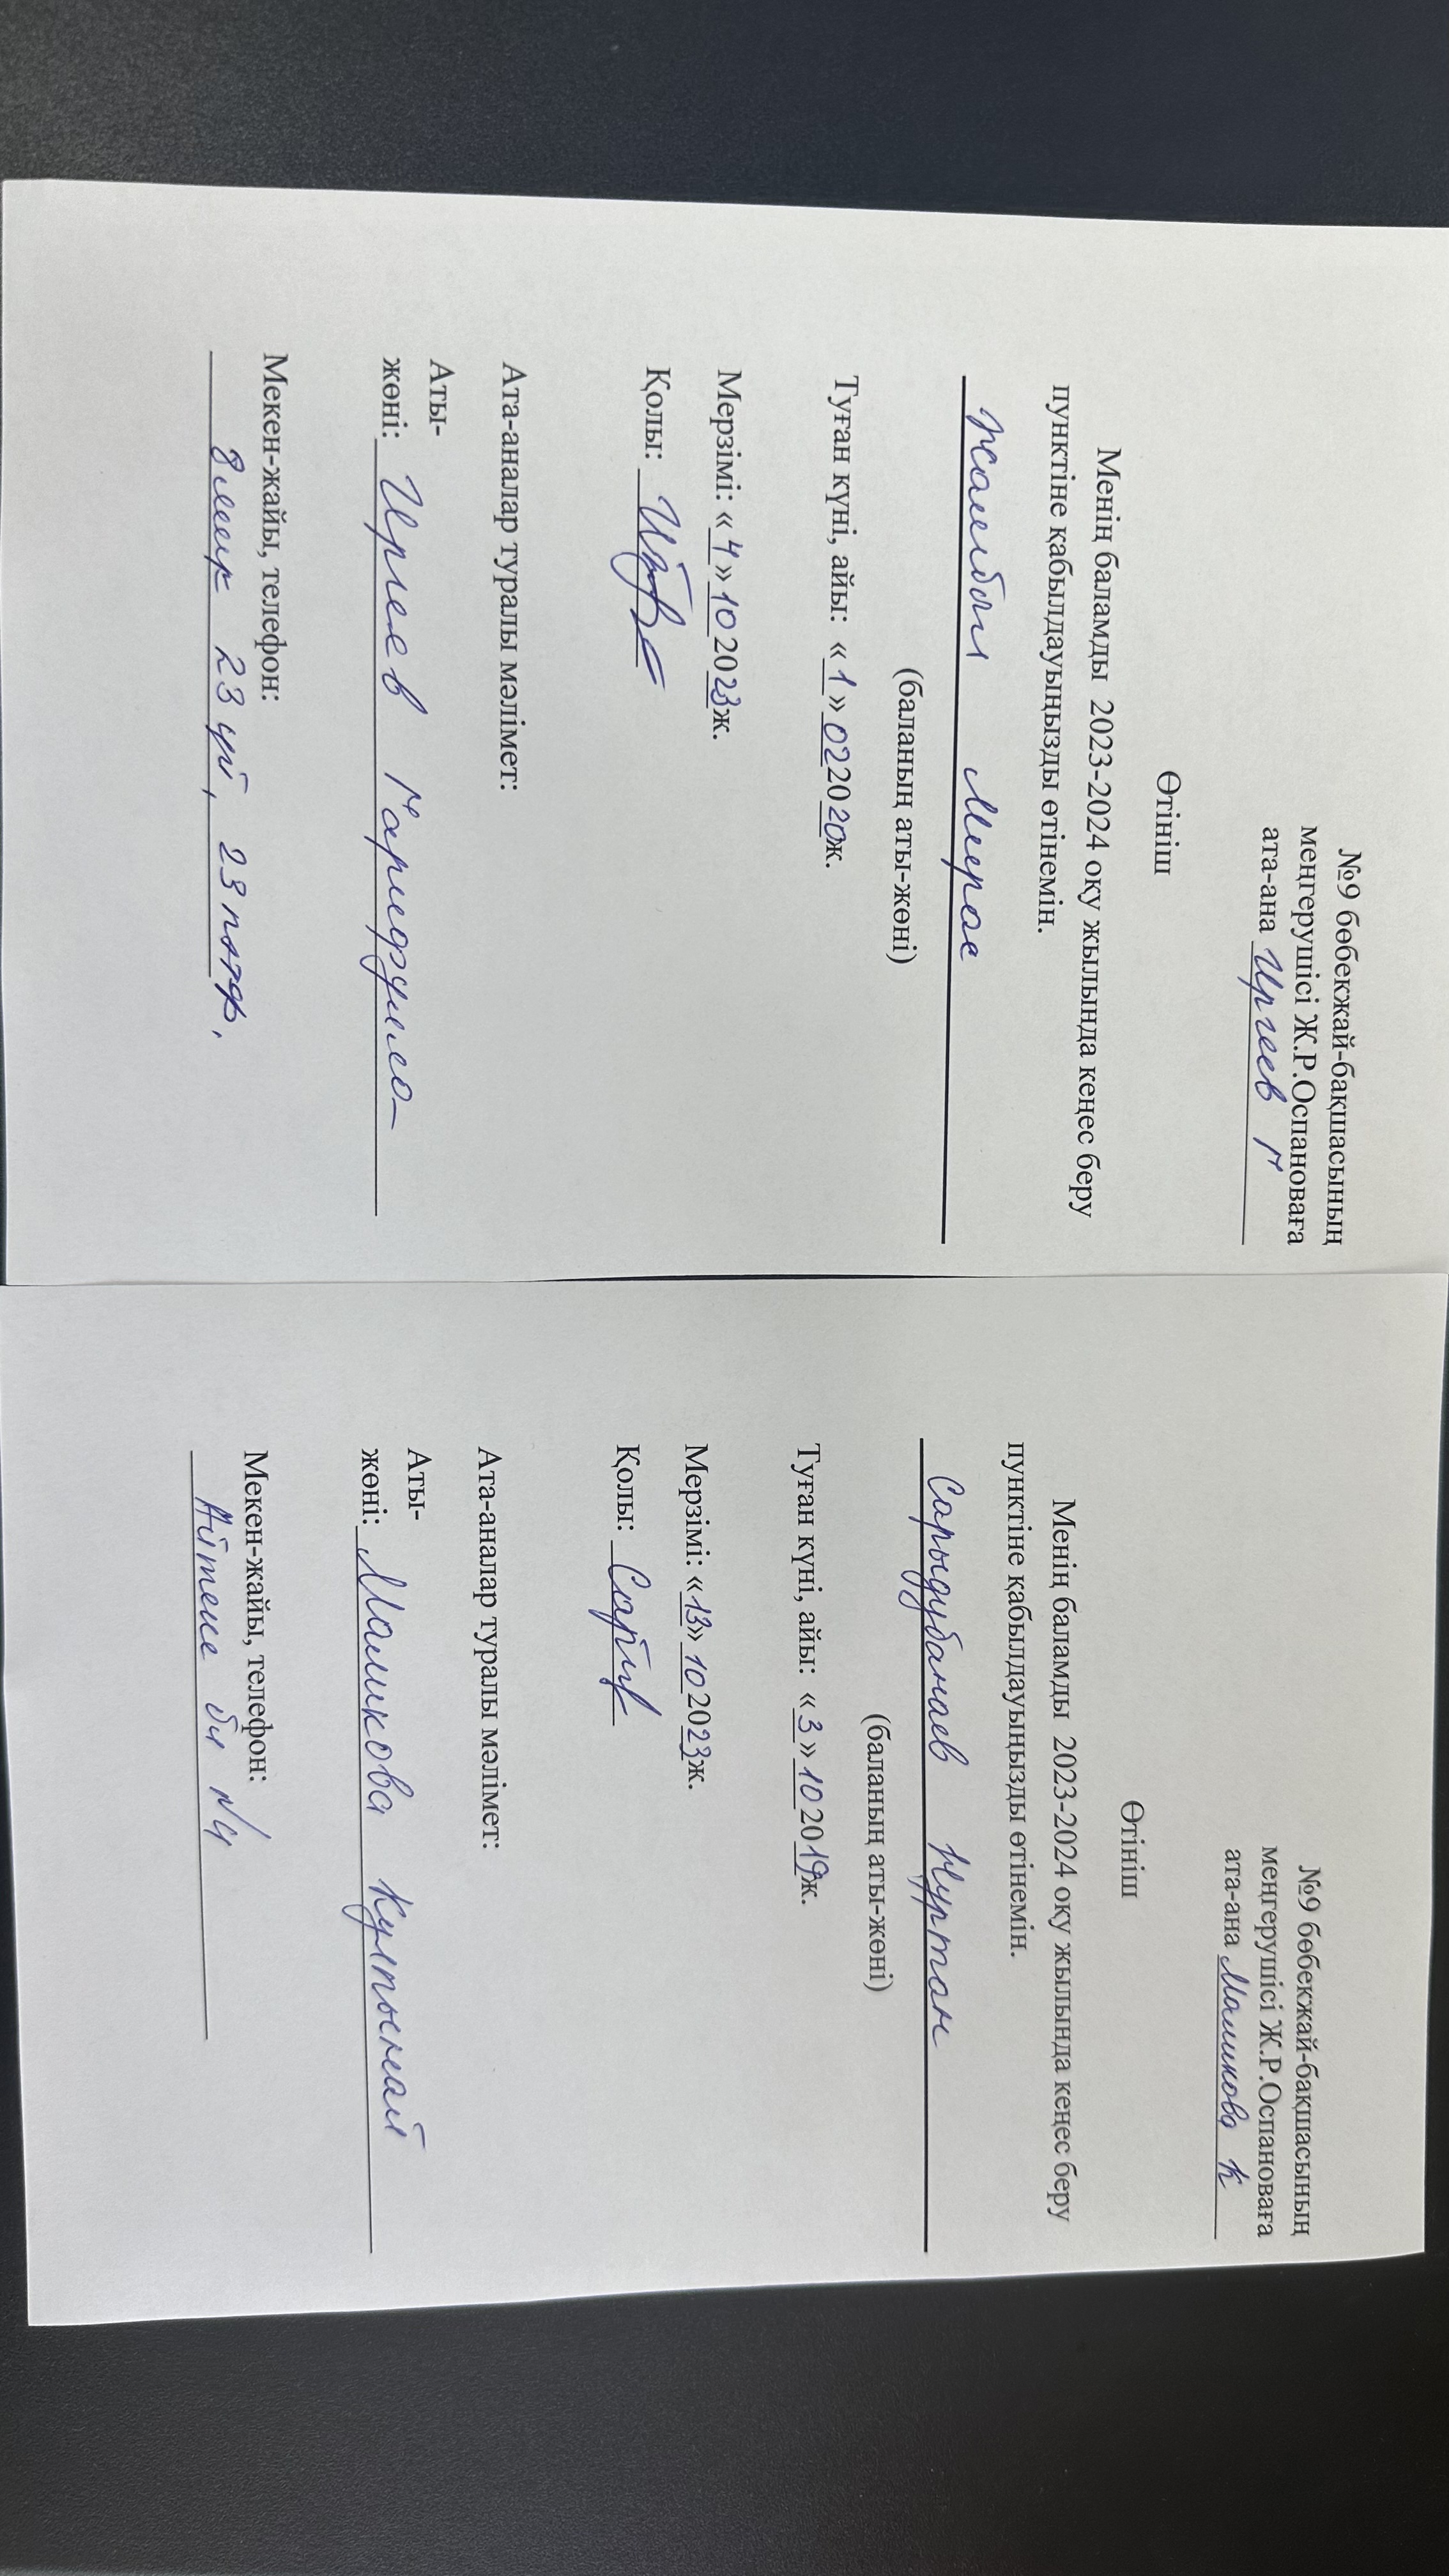 №9 бөбекжай-бақшасының
меңгерушісі Ж.Р.Оспановаға
ата-ана Иргеев Г
Өтініш
Менің баламды 2023-2024 оқу жылында кеңес беру
пунктіне қабылдауыңызды өтінемін.
Жанбол Мирас
(баланың аты-жөні)
Туған күні, айы: «1» 022020ж.
Мерзімі: «4» 102023ж.
Қолы:
Ата-аналар туралы мәлімет:
Аты-
жөні: Иргеев
Мекен-жайы, телефон:
8 23 үй, 23 пәтер.
№9 бөбекжай-бақшасының
меңгерушісі Ж.Р.Оспановаға
ата-ана Маликова К
Өтініш
Менің баламды 2023-2024 оқу жылында кеңес беру
пунктіне қабылдауыңызды өтінемін.
Сарыдубанаев Нұртан
(баланың аты-жөні)
Туған күні, айы: «3» 102019ж.
Мерзімі: «13» 102023ж.
Қолы:
Ата-аналар туралы мәлімет:
Аты-
жөні: Маликова Кулпынай
Мекен-жайы, телефон:
Айтеке би №4